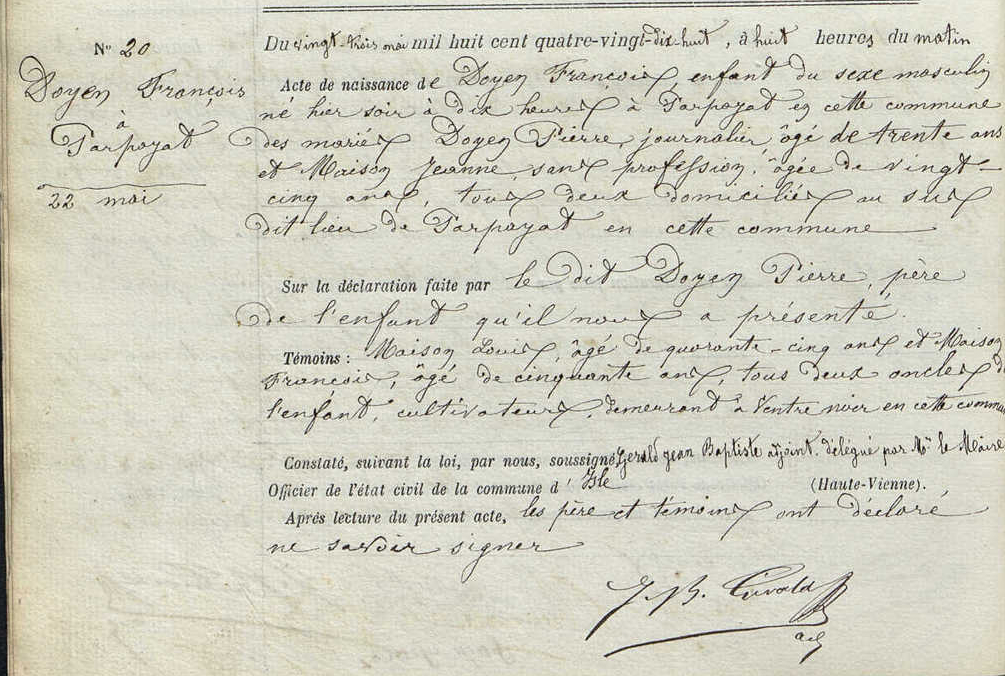 N° 20
Doyen François
à
Parpayat
22 mai
Du vingt-trois mai mil huit cent quatre-vingt-dix-huit, à huit heures du matin
Acte de naissance de Doyen François, enfant du sexe masculin
né hier soir à dix heures à Parpayat en cette commune
des mariés Doyen Pierre, journalier, âgé de trente ans
et Maison Jeanne, sans profession, âgée de vingt-
cinq ans, tous deux domiciliés au sus
dit lieu de Parpayat en cette commune
Sur la déclaration faite par le dit Doyen Pierre, père
de l'enfant qu'il nous a présenté.
Témoins : Maison Louis, âgé de quarante-cinq ans et Maison
François, âgé de cinquante ans, tous deux oncles de
l'enfant, cultivateurs, demeurant à Ventre noir en cette commu
Constaté, suivant la loi, par nous, soussigné, Gerald Jean Baptiste adjoint délégué par Mr le Maire
Officier de l'état civil de la commune d' Isle (Haute-Vienne).
Après lecture du présent acte, les père et témoins ont déclaré
ne savoir signer
J. B. Gerald
adj